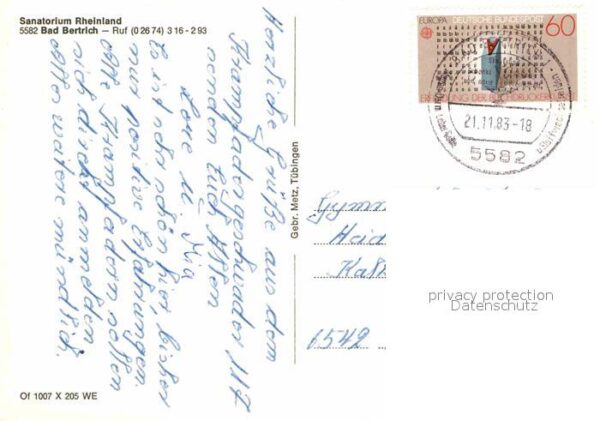 Sanatorium Rheinland
5582 Bad Bertrich – Ruf (0 26 74) 3 16 - 2 93
Herzliche Grüße aus dem
Krampfadergeschwader
senden Euch Allen
Lore u. Pia
Es ist sehr schön hier, bisher
nur positive Erfahrungen.
Alle Krampfadern sollen
sich direkt anmelden
alles weitere mündlich.
Gebr. Metz, Tübingen
Of 1007 X 205 WE
EUROPA DEUTSCHE BUNDESPOST 60
ERFINDUNG DER BUCHDRUCKERKUNST
21.11.83-18
5582
6542
privacy protection
Datenschutz